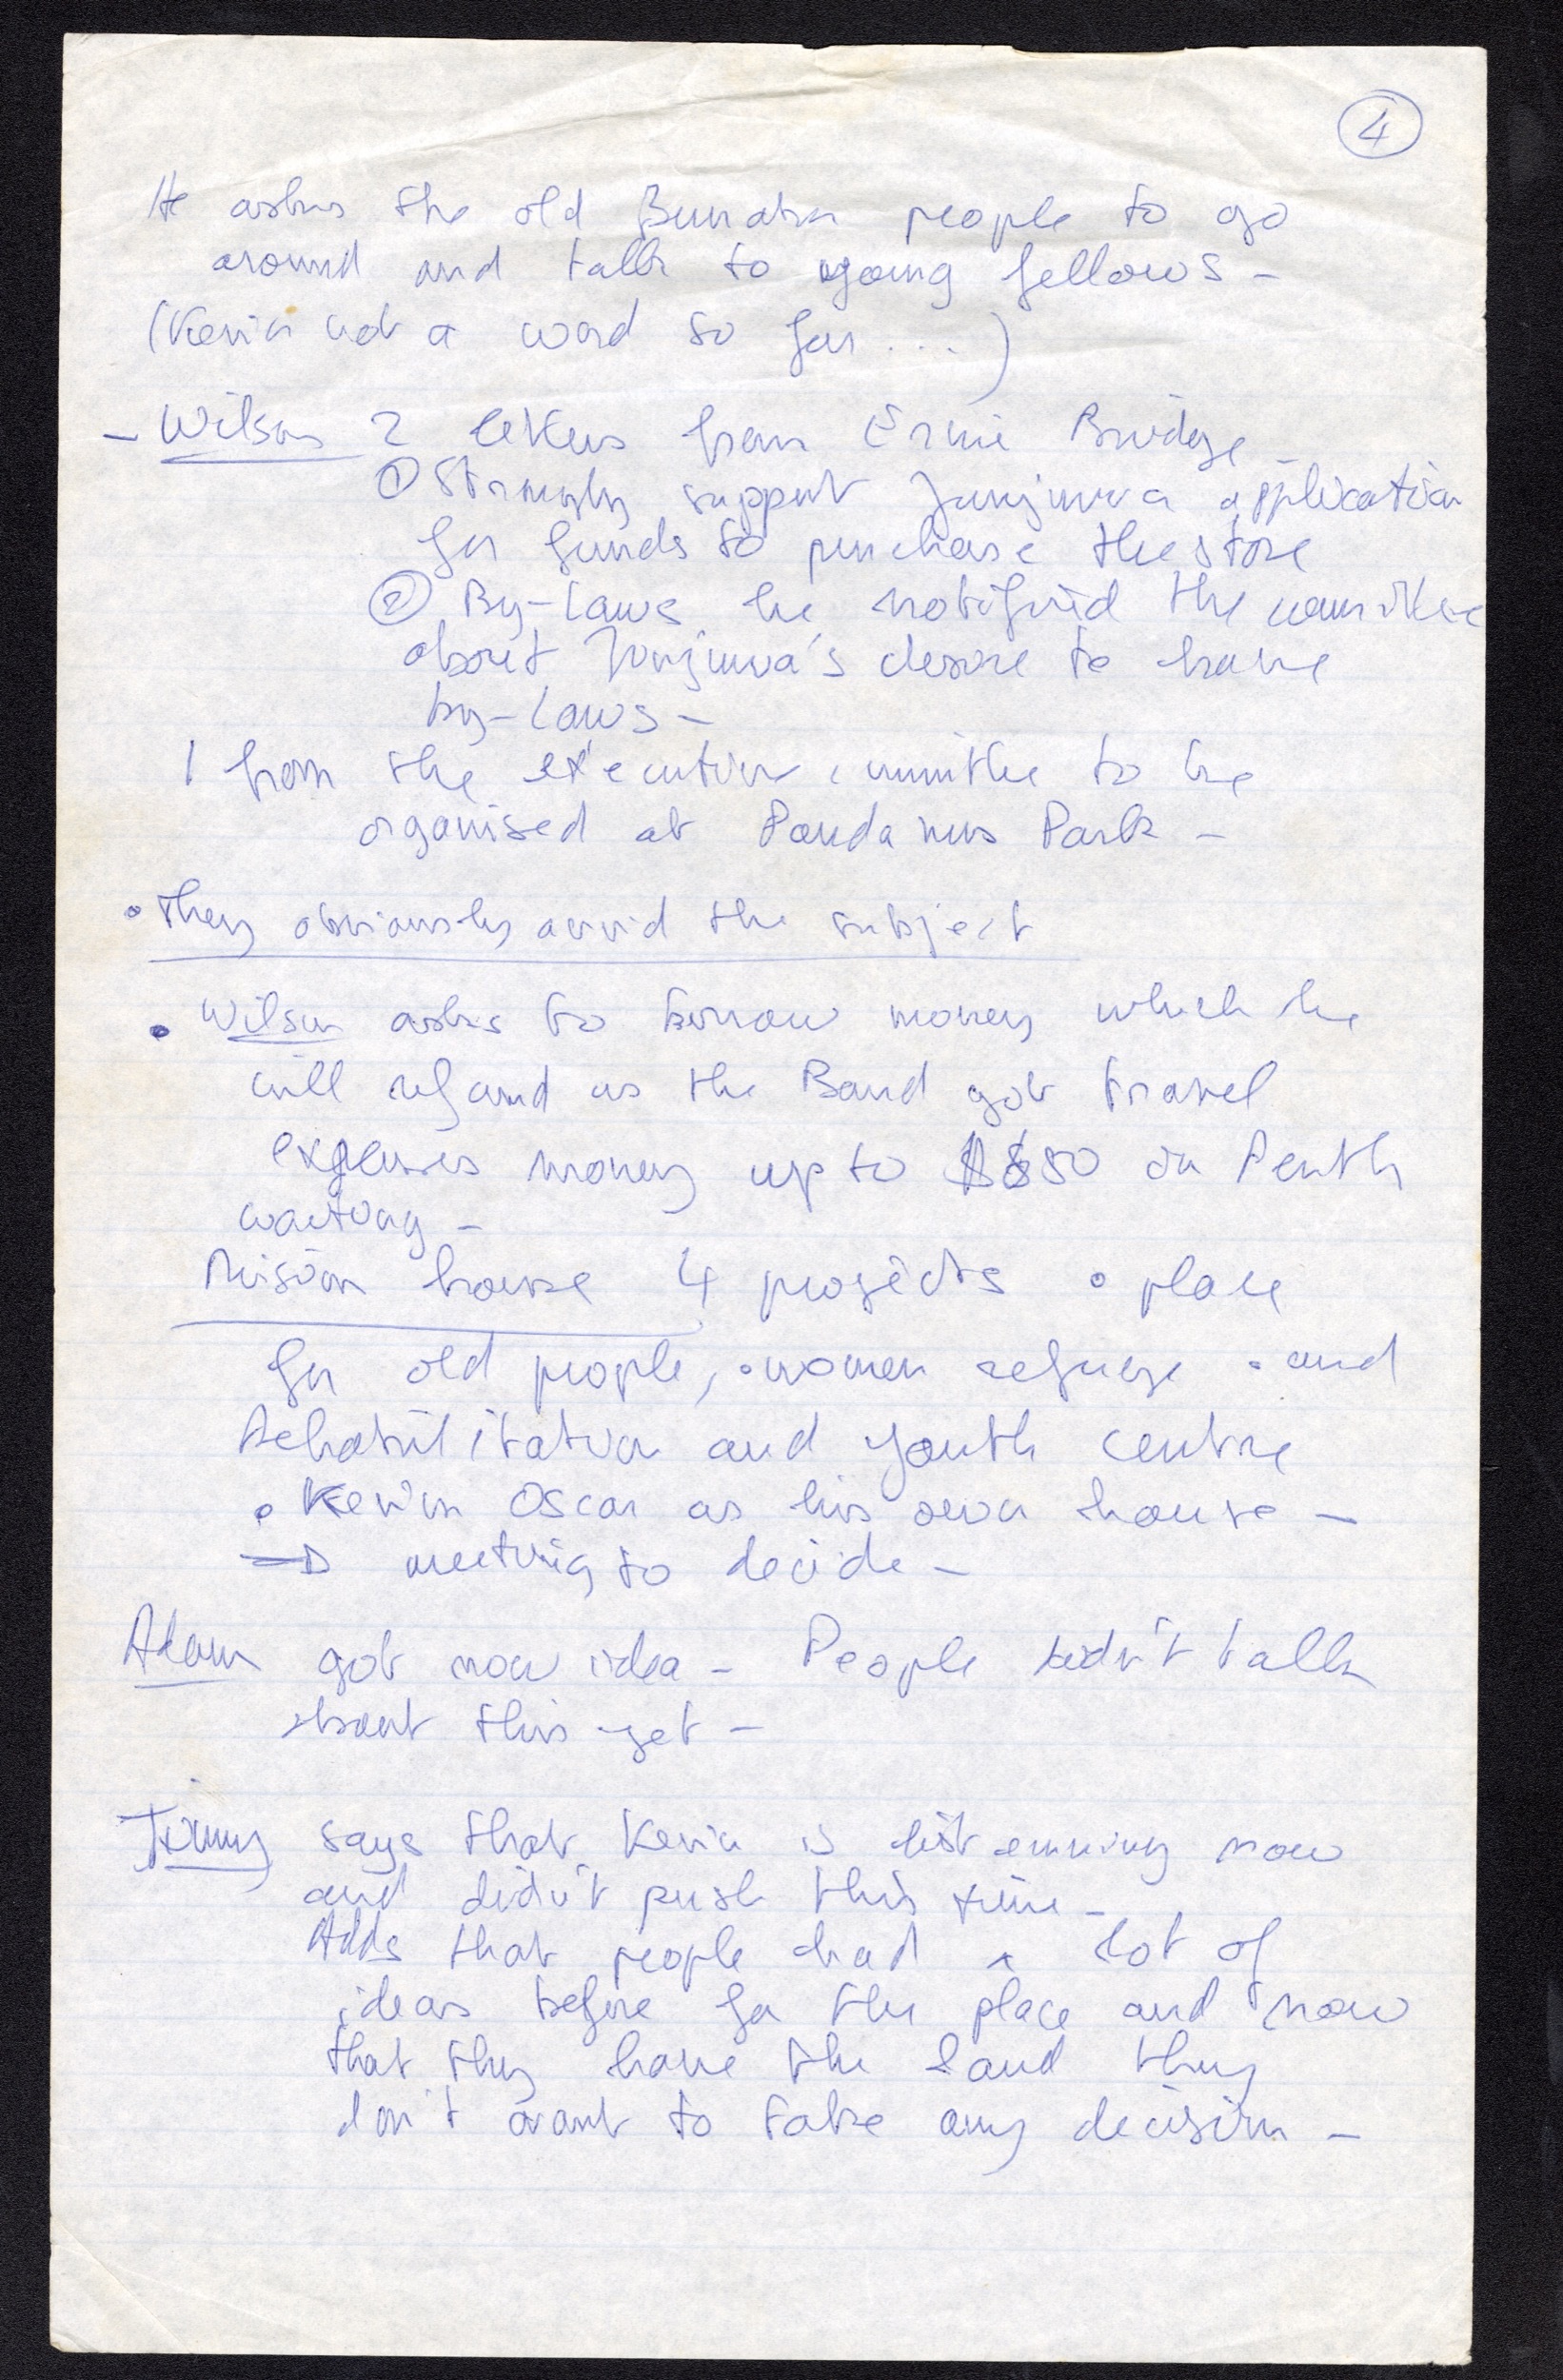 4
He asks the old Bunaba people to go
around and talk to young fellows -
(Kevin not a word so far ...)
- Wilson 2 letters from Ernie Bridge
① Strongly support Junjuwa application
for funds to purchase the store
② By-laws he notified the committee
about Junjuwa's desire to have
by-laws -
1 from the executive committee to be
organised at Pandanus Park -
• They obviously avoid the subject
• Wilson asks to borrow money which he
will refund as the Band got travel
expenses money up to in Perth
waiting -
Mision house 4 projects • place
for old people, • women refuge • and
Rehabilitation and youth centre
• Kevin Oscar as his own house -
→ meeting to decide -
Adam got now idea - People didn't talk
about this yet -
Jimmy says that Kevin is listenning now
and didn't push this time -
Adds that people had a lot of
ideas before for the place and now
that they have the land they
don't want to take any decision -